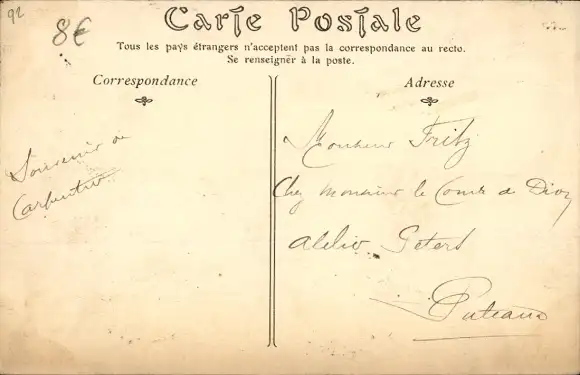 92
8€
Carte Postale
Tous les pays étrangers n'acceptent pas la correspondance au recto.
Se renseigner à la poste.
Correspondance
Adresse
Souvenir de
Carpentier
Monsieur Fritz
Chez monsieur le Comte de Dion
Puteaux